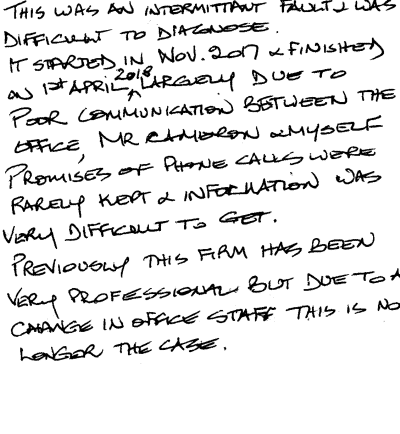 THIS WAS AN INTERMITTANT FAULT & WAS
DIFFICULT TO DIAGNOSE.
IT STARTED IN NOV. 2017 & FINISHED
ON 1ST APRIL 2018 LARGELY DUE TO
POOR COMMUNICATION BETWEEN THE
OFFICE, MR CAMERON & MYSELF
PROMISES OF PHONE CALLS WERE
RARELY KEPT & INFORMATION WAS
VERY DIFFICULT TO GET.
PREVIOUSLY THIS FIRM HAS BEEN
VERY PROFESSIONAL BUT DUE TO A
CHANGE IN OFFICE STAFF THIS IS NO
LONGER THE CASE.